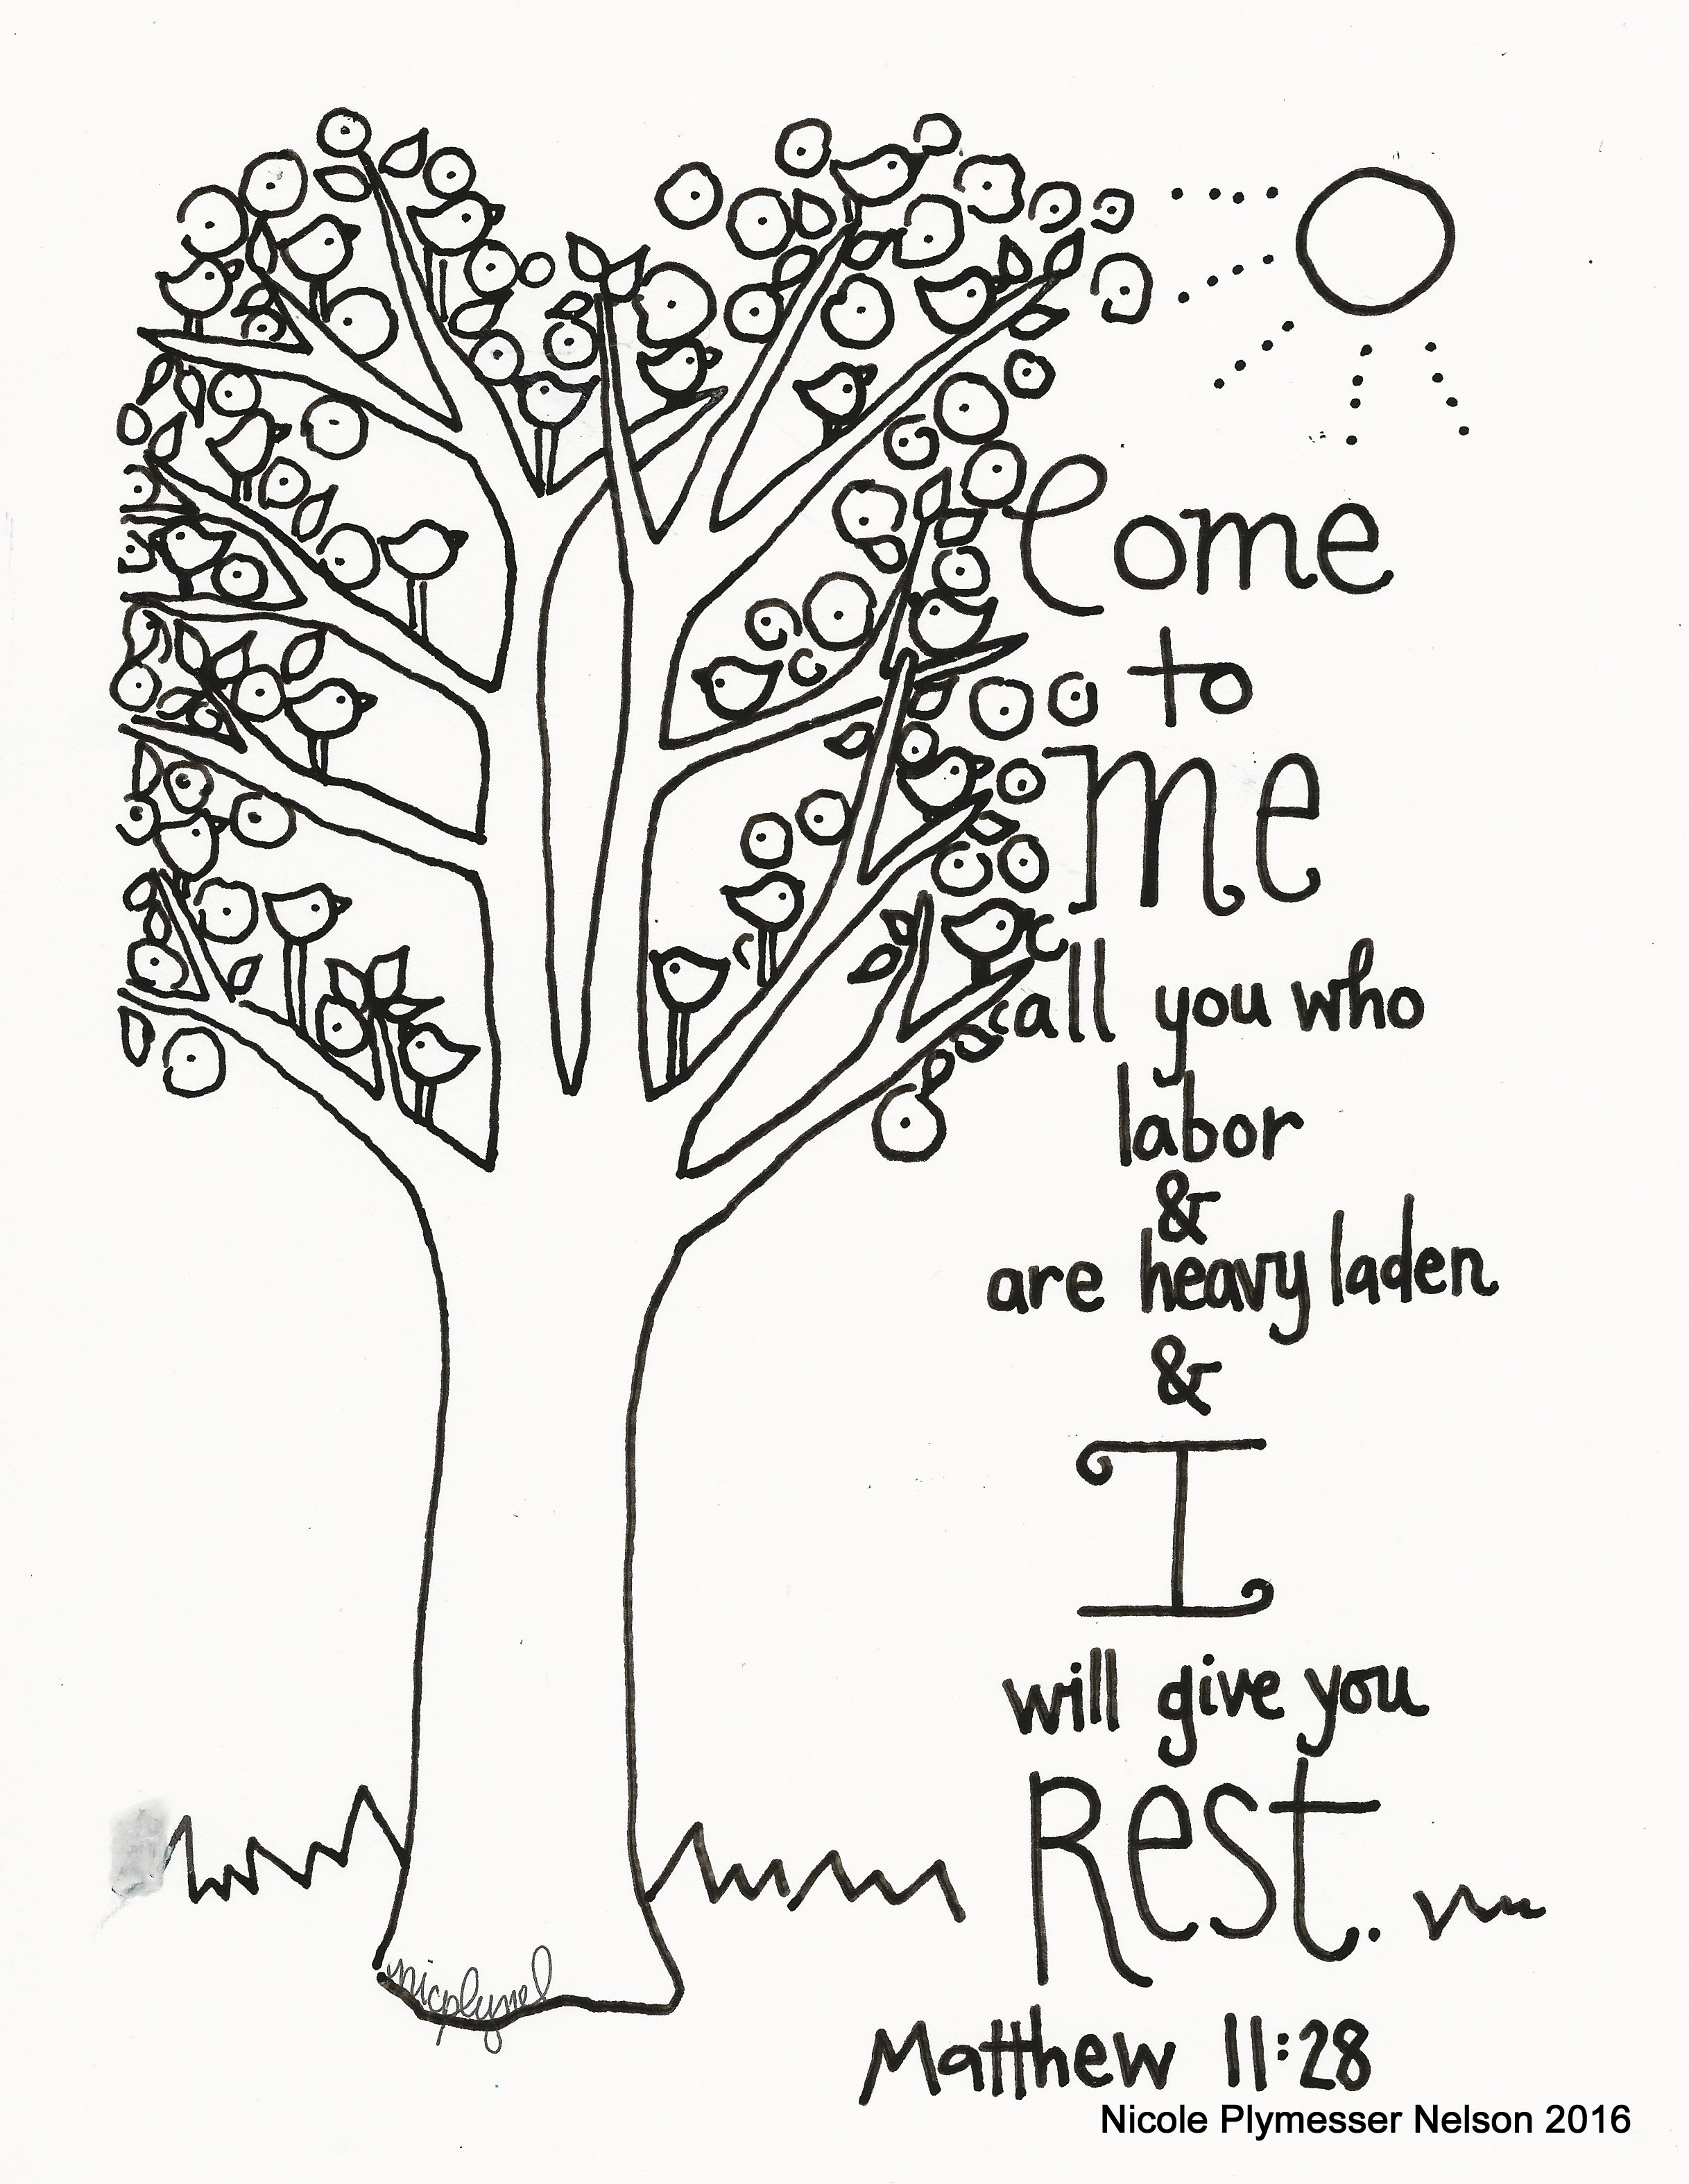 Come
to
me
all you who
labor
&
are heavy laden
&
I
will give you
Rest.
nicplynel
Matthew 11:28
Nicole Plymesser Nelson 2016